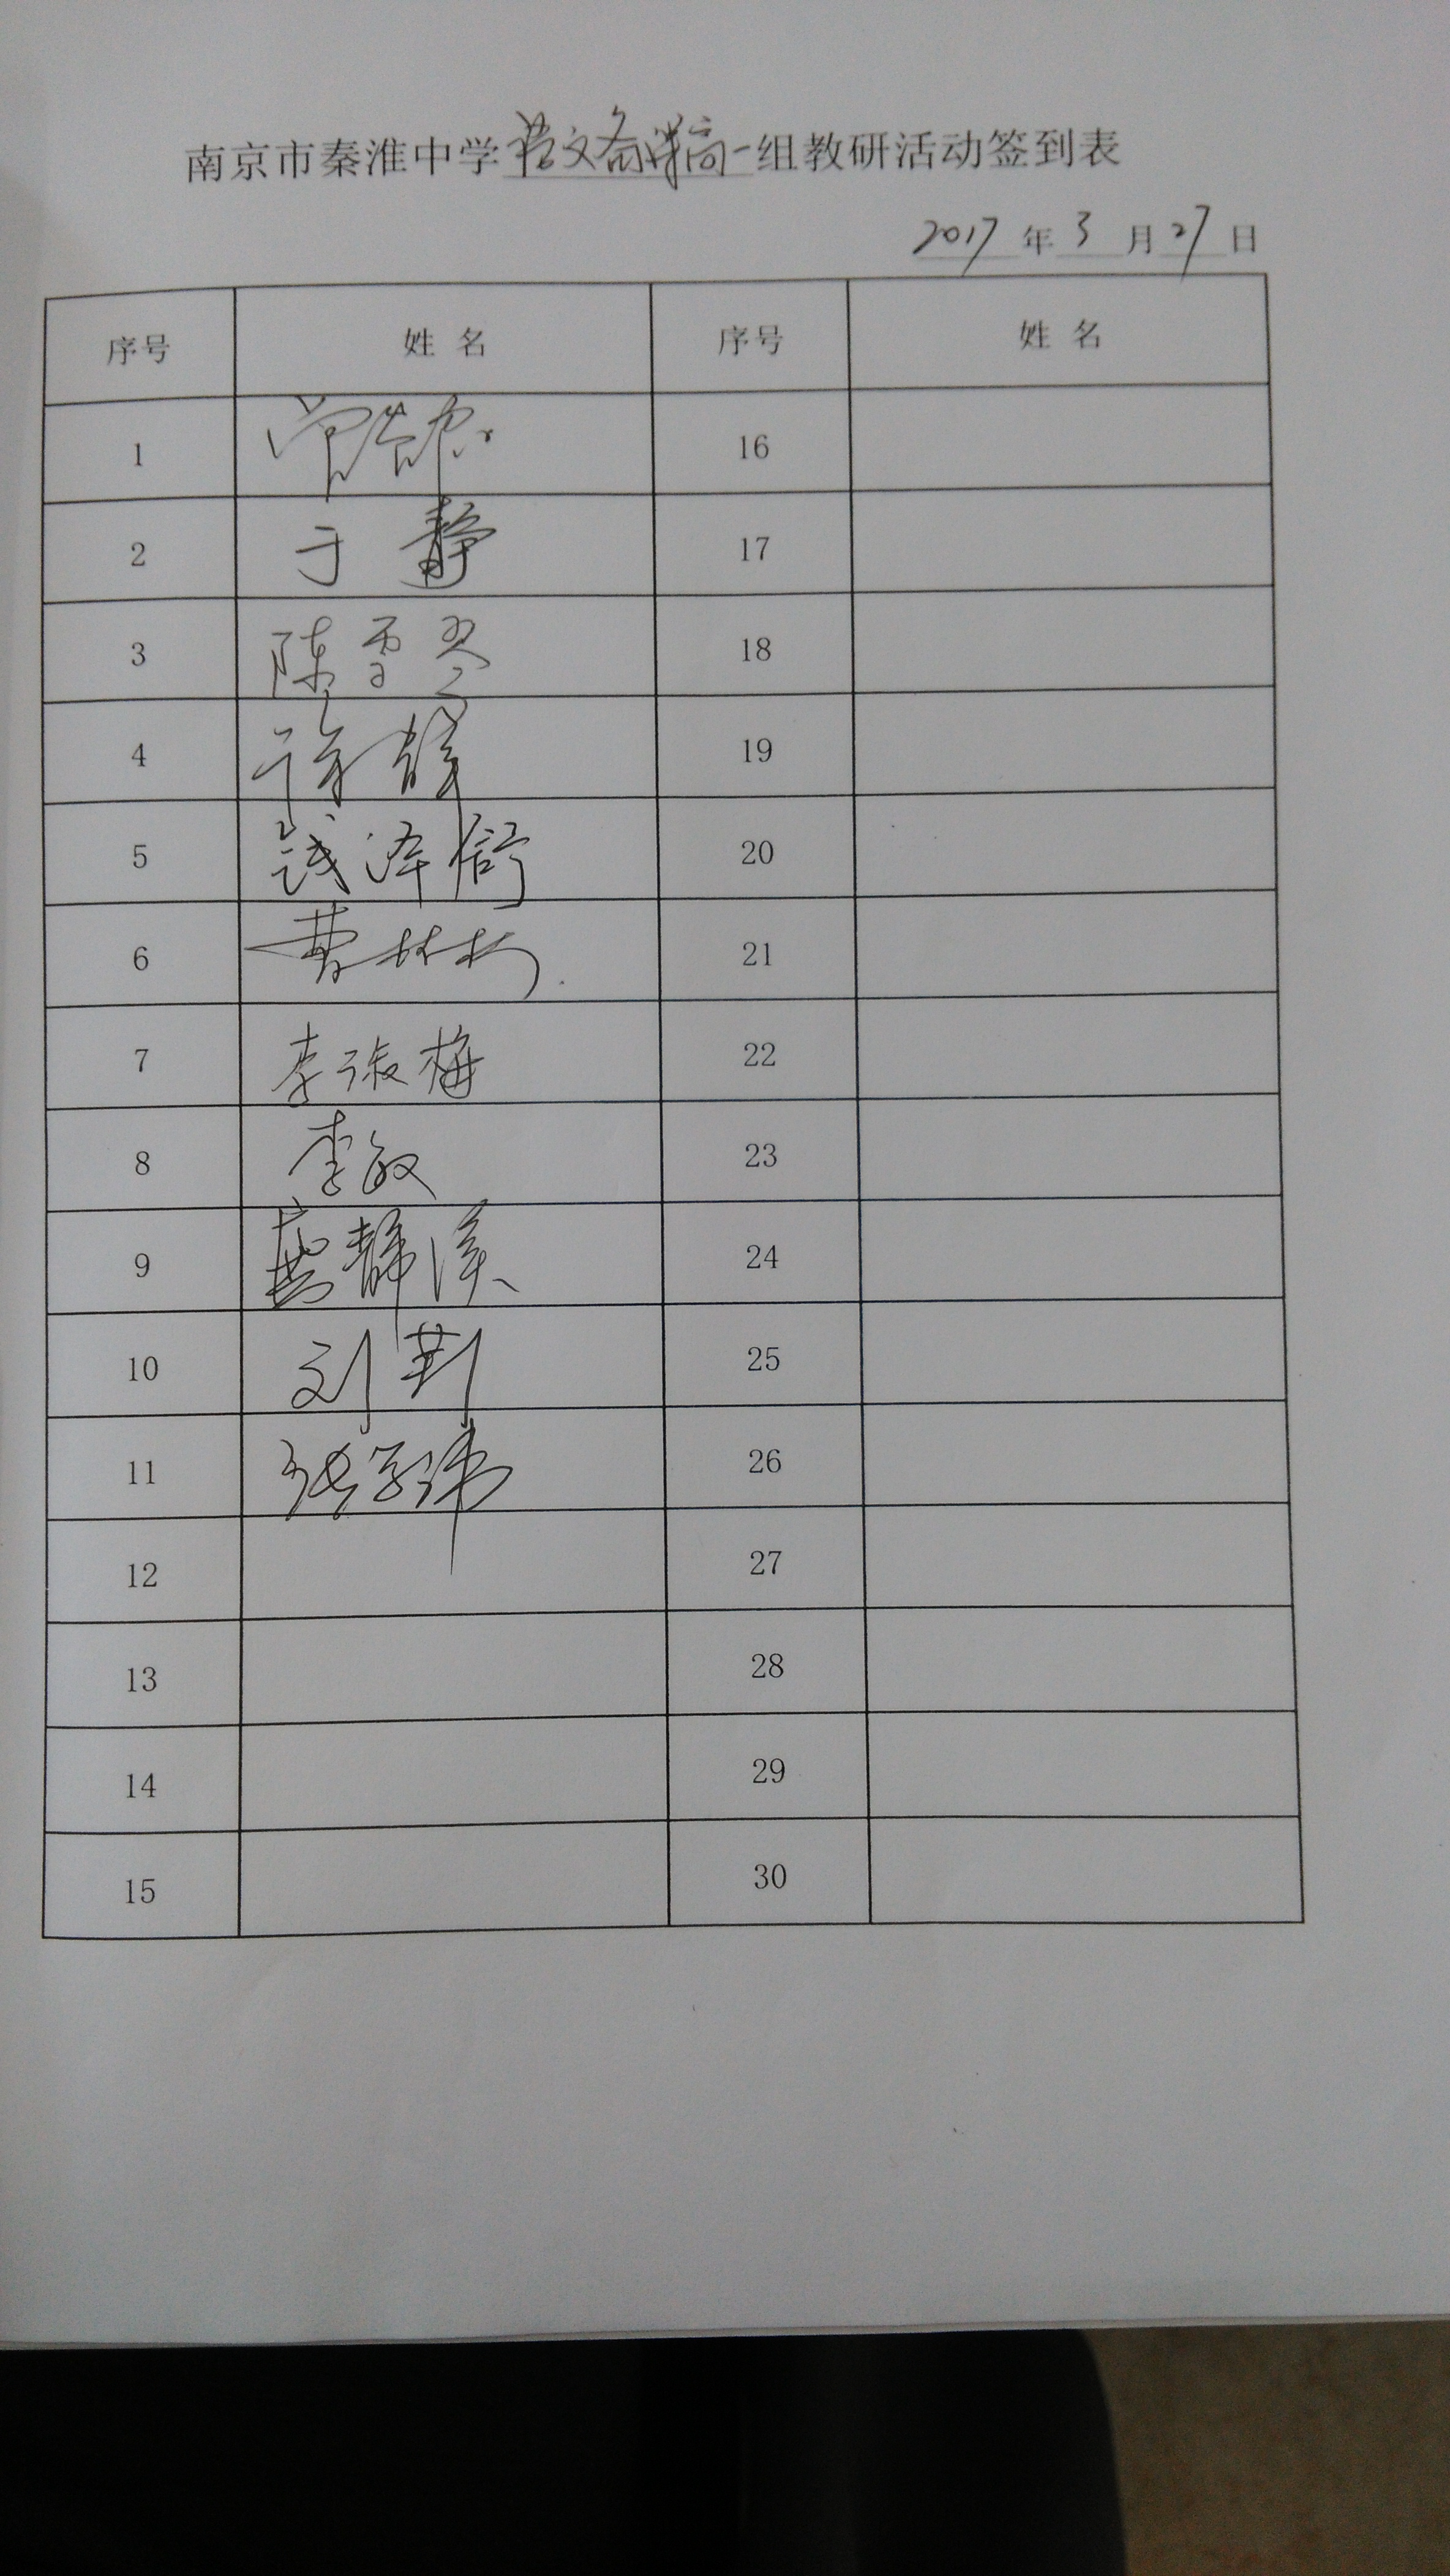 南京市秦淮中学语文备课高一组教研活动签到表
2017年3月27日
序号 姓名 序号 姓名
1 16
2 于静 17
3 陈雪琴 18
4 徐群 19
5 钱泽舒 20
6 曹林彬 21
7 李淑梅 22
8 李敏 23
9 龚静溪 24
10 刘荆 25
11 张学沛 26
12 27
13 28
14 29
15 30